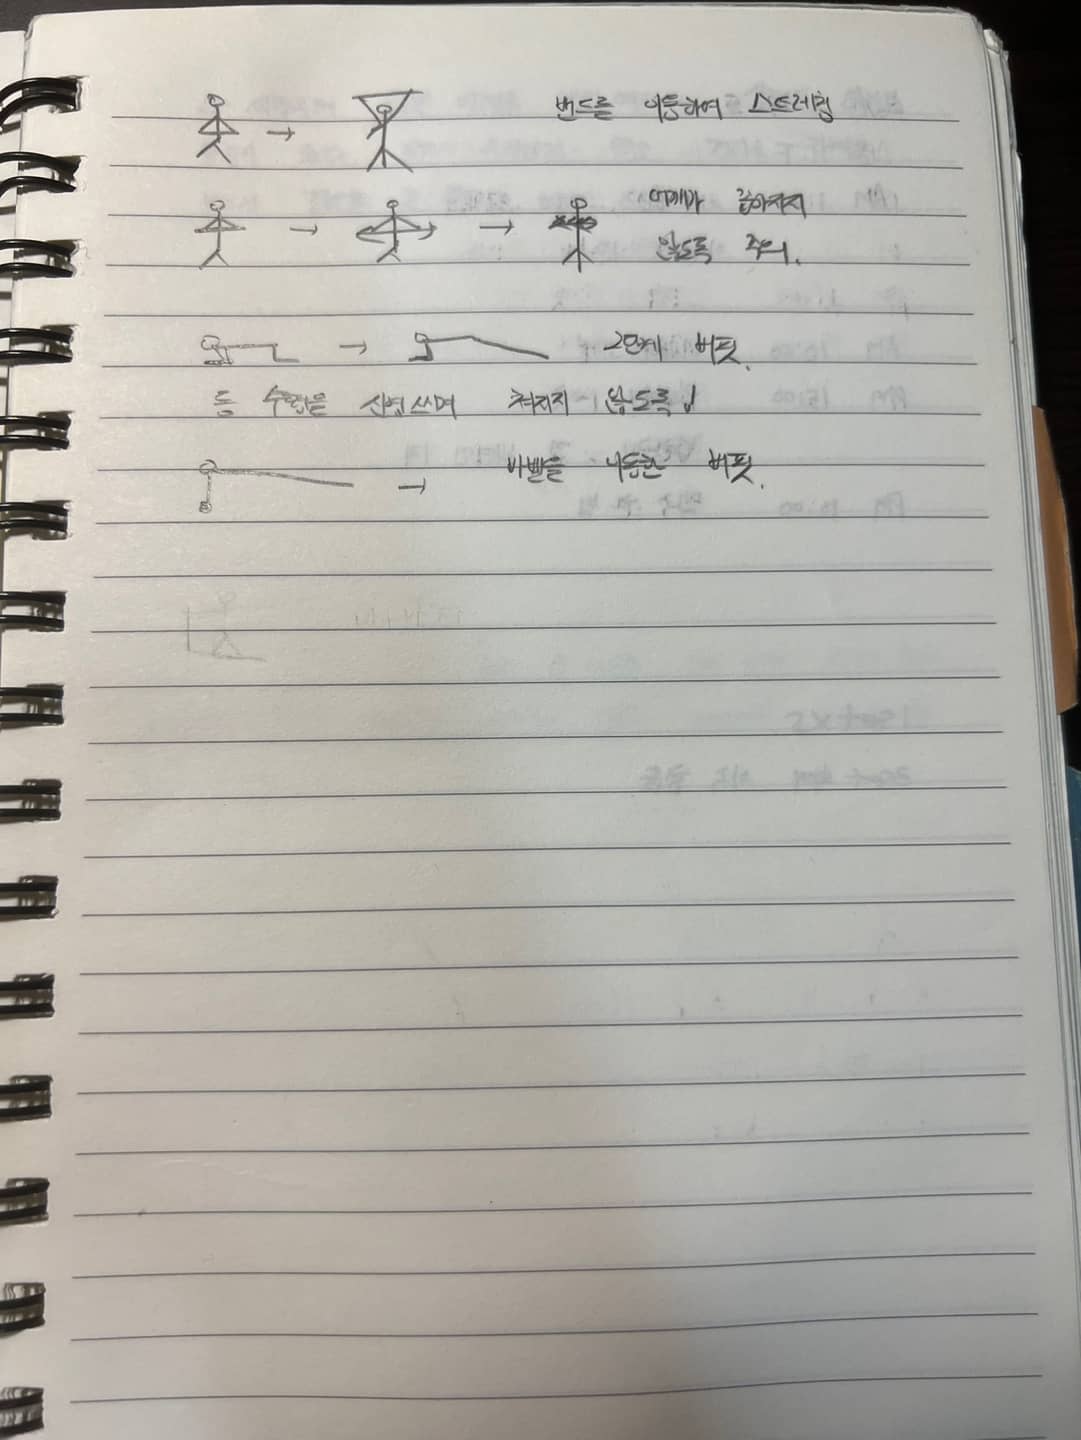 밴드를 이용하여 스트레칭
어깨가 굽어지지
않도록 주의.
2단계 버핏.
등 수평을 신경쓰며 쳐지지 않도록!
바벨을 이용한 버핏.